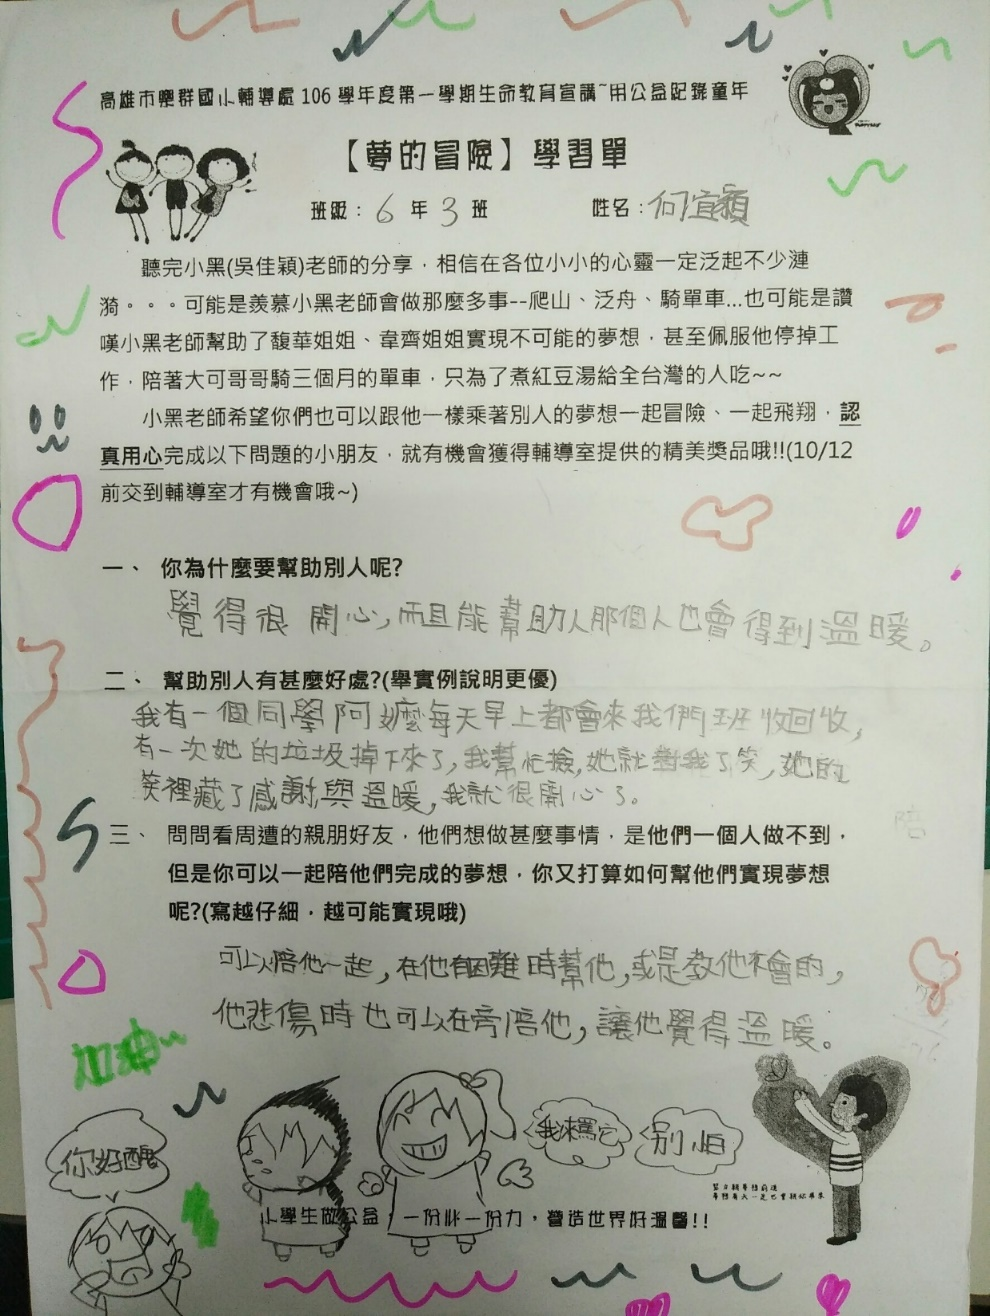 高雄市樂群國小輔導處 106 學年度第一學期生命教育宣講~用公益記錄童年
【夢的冒險】學習單
班級：6 年 3 班 姓名：何宜蘋
聽完小黑(吳佳穎)老師的分享，相信在各位小小的心靈一定泛起不少漣
漪。。。可能是羨慕小黑老師會做那麼多事--爬山、泛舟、騎單車...也可能是讚
嘆小黑老師幫助了馥華姐姐、韋齊姐姐實現不可能的夢想，甚至佩服他停掉工
作，陪著大可哥哥騎三個月的單車，只為了煮紅豆湯給全台灣的人吃~~
小黑老師希望你們也可以跟他一樣乘著別人的夢想一起冒險、一起飛翔，認
真用心完成以下問題的小朋友，就有機會獲得輔導室提供的精美獎品哦!!(10/12
前交到輔導室才有機會哦~)
一、 你為什麼要幫助別人呢?
覺得很開心,而且能幫助人那個人也會得到溫暖。
二、 幫助別人有甚麼好處?(舉實例說明更優)
我有一個同學阿嬤每天早上都會來我們班收回收,
有一次她的垃圾掉下來了,我幫忙撿,她就對我了笑,她的
笑裡藏了感謝與溫暖,我就很開心了。
三、 問問看周遭的親朋好友，他們想做甚麼事情，是他們一個人做不到，
但是你可以一起陪他們完成的夢想，你又打算如何幫他們實現夢想
呢?(寫越仔細，越可能實現哦)
可以陪他一起,在他有困難時幫他,或是教他不會的,
他悲傷時也可以在旁陪他,讓他覺得溫暖。
陪
加油
你好醜
我來罵它
別怕
小學生做公益，一份心一份力，營造世界好溫馨!!